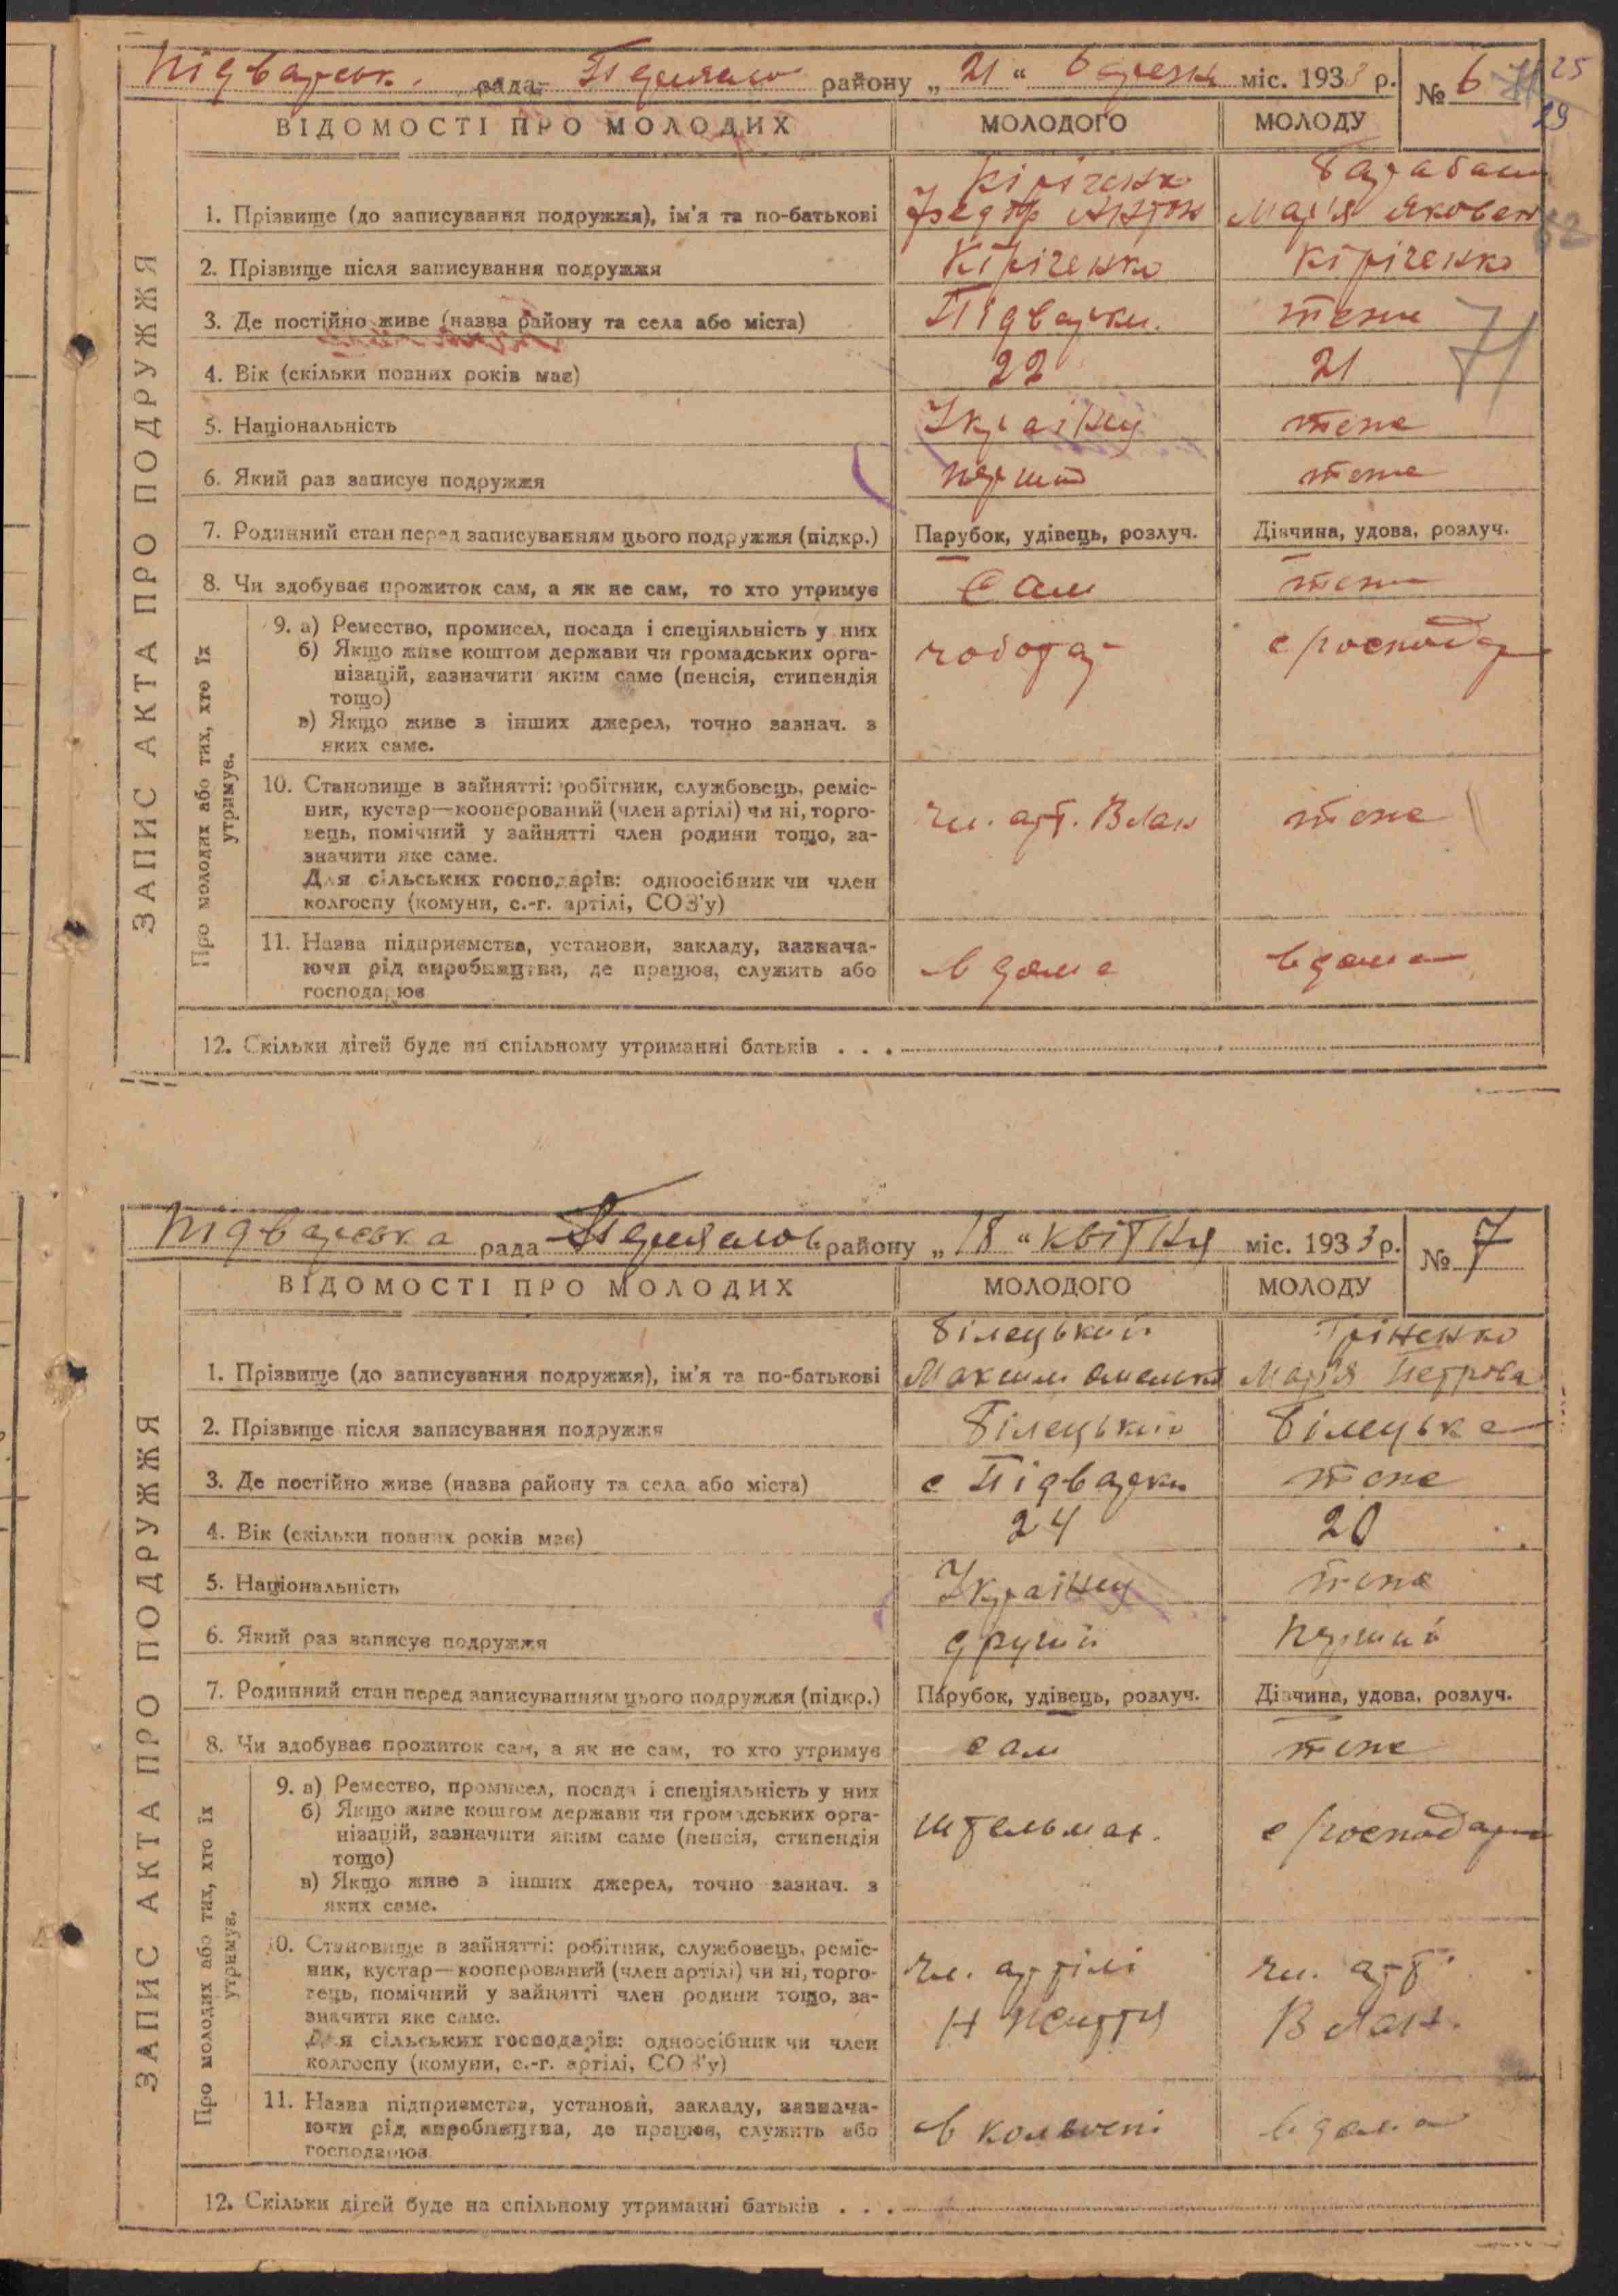 Підварськ. рада району „ 21 “ березня міс. 1933 р. № 6
25
29
ВІДОМОСТІ ПРО МОЛОДИХ МОЛОДОГО МОЛОДУ
ЗАПИС АКТА ПРО ПОДРУЖЖЯ
Кіріченко Барабаш
1. Прізвище (до записування подружжя), ім'я та по-батькові Федор Антон Марія Яковен
2. Прізвище після записування подружжя Кіріченко Кіріченко
3. Де постійно живе (назва району та села або міста) Підварки. теже
71
4. Вік (скільки повних років має) 22 21
5. Національність Українец теже
6. Який раз записує подружжя перший теже
7. Родинний стан перед записуванням цього подружжя (підкр.) Парубок, удівець, розлуч. Дівчина, удова, розлуч.
8. Чи здобуває прожиток сам, а як не сам, то хто утримує сам теже
Про молодих або тих, хто їх утримує.
9. а) Ремество, промисел, посада і спеціяльність у них чоботар с/господар
б) Якщо живе коштом держави чи громадських орга-
нізацій, зазначити яким саме (пенсія, стипендія
тощо)
в) Якщо живе з інших джерел, точно зазнач. з
яких саме.
10. Становище в зайнятті: робітник, службовець, реміс-
ник, кустар—кооперований (член артілі) чи ні, торго- чл. арт. Влан теже
вець, помічний у зайнятті член родини тощо, за-
значити яке саме.
Для сільських господарів: одноосібник чи член
колгоспу (комуни, с.-г. артілі, СОЗ'у)
11. Назва підприємства, установи, закладу, зазнача-
ючи рід виробництва, де працює, служить або вдома вдома
господарює
12. Скільки дітей буде на спільному утриманні батьків . . .
Підварська рада району „ 18 “ квітня міс. 1933 р. № 7
ВІДОМОСТІ ПРО МОЛОДИХ МОЛОДОГО МОЛОДУ
ЗАПИС АКТА ПРО ПОДРУЖЖЯ
Білецький Гріненко
1. Прізвище (до записування подружжя), ім'я та по-батькові Максим Омельк Марія Петрова
2. Прізвище після записування подружжя Білецький Білецька
3. Де постійно живе (назва району та села або міста) с Підварки теже
4. Вік (скільки повних років має) 24 20
5. Національність Українец теже
6. Який раз записує подружжя другий перший
7. Родинний стан перед записуванням цього подружжя (підкр.) Парубок, удівець, розлуч. Дівчина, удова, розлуч.
8. Чи здобуває прожиток сам, а як не сам, то хто утримує сам теже
Про молодих або тих, хто їх утримує.
9. а) Ремество, промисел, посада і спеціяльність у них
б) Якщо живе коштом держави чи громадських орга- штельмах. с/господар
нізацій, зазначити яким саме (пенсія, стипендія
тощо)
в) Якщо живе з інших джерел, точно зазнач. з
яких саме.
10. Становище в зайнятті: робітник, службовець, реміс-
ник, кустар—кооперований (член артілі) чи ні, торго- чл. артілі чл. арт
вець, помічний у зайнятті член родини тощо, за-
значити яке саме. Н Життя Влан.
Для сільських господарів: одноосібник чи член
колгоспу (комуни, с.-г. артілі, СОЗ'у)
11. Назва підприємства, установи, закладу, зазнача-
ючи рід виробництва, де працює, служить або в колгоспі вдома
господарює
12. Скільки дітей буде на спільному утриманні батьків . . .